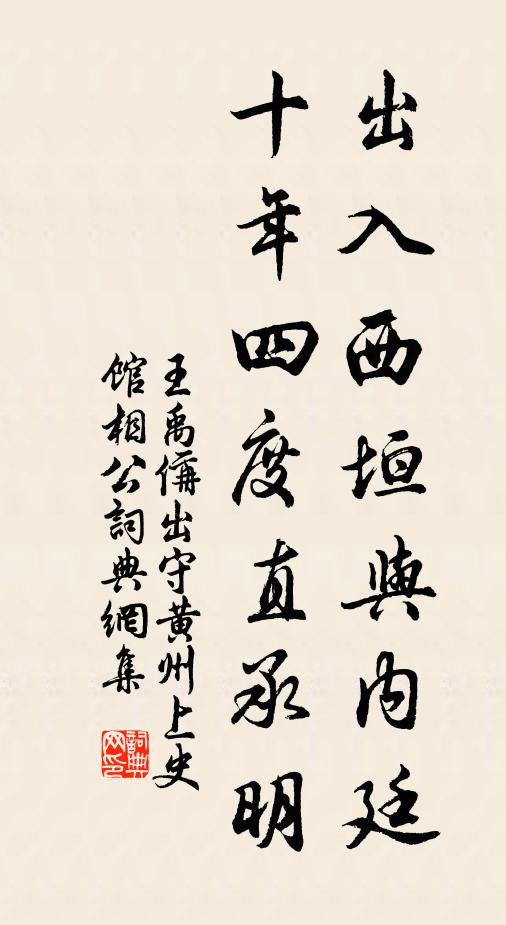 出入西垣與內廷
十年四度直承明
王禹偁出守黃州上史
館相公詞典網集
詞典
网印